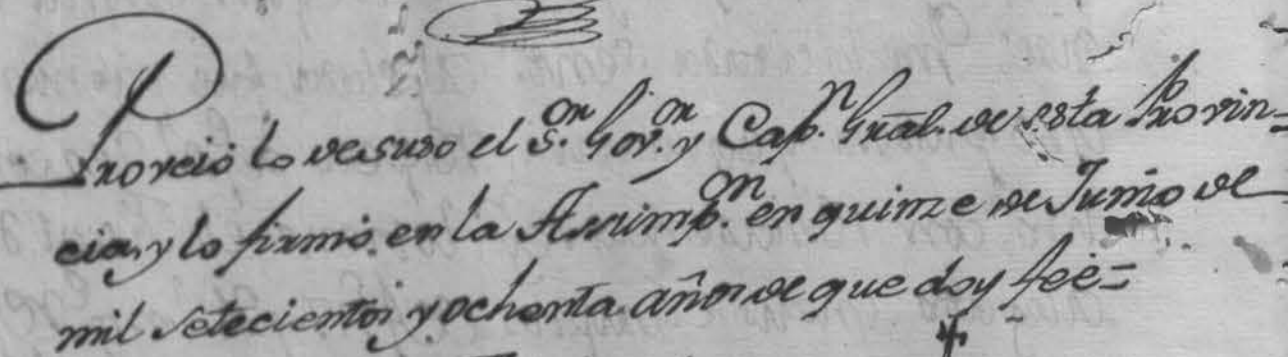 Proveió lo desuso el S.ᵒⁿ Gov.ᵒⁿ y Cap.ⁿ Gral. de esta Provin-
cia, y lo firmó en la Assump.ᵒⁿ en quinze de Junio de
mil setecientos y ochenta años de que doy feé=